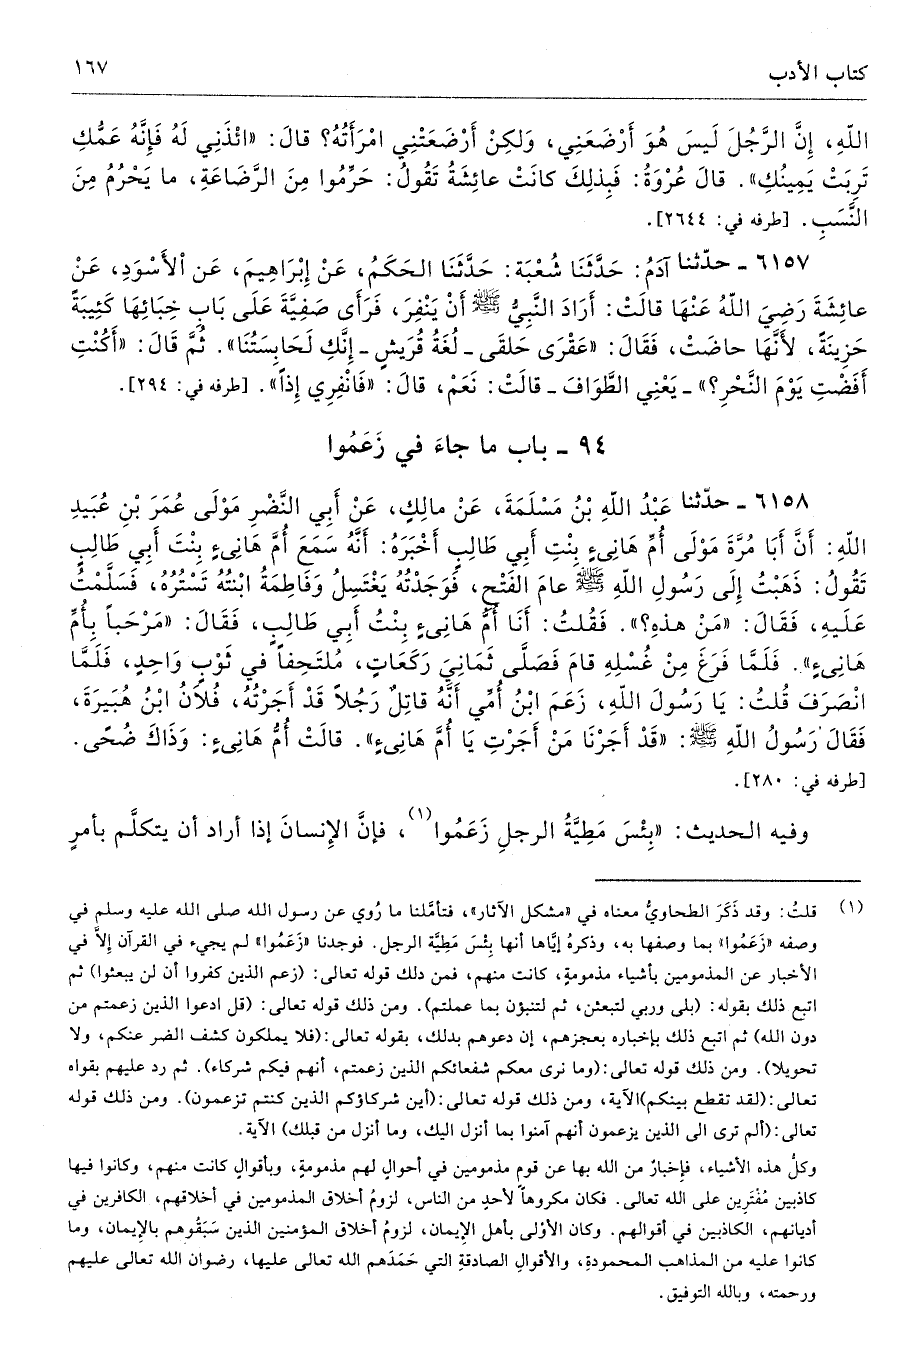 كتاب الأدب ١٦٧
اللّهِ، إنَّ الرَّجُلَ لَيسَ هُوَ أَرْضَعَنِي، وَلكِنْ أَرْضَعَتْنِي امْرَأَتُهُ؟ قالَ: «ائْذَنِي لَهُ فَإِنَّهُ عَمُّكِ
تَرِبَتْ يَمِينُكِ». قالَ عُرْوَةُ: فَبِذلِكَ كانَتْ عائِشَةُ تَقُولُ: حَرِّمُوا مِنَ الرَّضَاعَةِ، ما يَحْرُمُ مِنَ
النَّسَبِ. [طرفه في: ٢٦٤٤].
٦١٥٧ ـ حدّثنا آدَمُ: حَدَّثَنَا شُعْبَة: حَدَّثَنَا الحَكَمُ، عَنْ إِبْرَاهِيمَ، عَنِ الأَسْوَدِ، عَنْ
عائِشَةَ رَضِيَ اللّهُ عَنْهَا قالَتْ: أَرَادَ النَّبِيُّ ﷺ أَنْ يَنْفِرَ، فَرَأَى صَفِيَّةَ عَلَى بَابِ خِبَائِهَا كَئِيبَةً
حَزِينَةً، لأَنَّهَا حاضَتْ، فَقَالَ: «عَقْرَى حَلقَى ـ لُغَةُ قُرَيشٍ ـ إِنَّكِ لَحَابِسَتُنَا». ثُمَّ قَالَ: «أَكُنْتِ
أَفَضْتِ يَوْمَ النَّحْرِ؟» ـ يَعْنِي الطَّوَافَ ـ قالَتْ: نَعَمْ، قالَ: «فَانْفِرِي إِذاً». [طرفه في: ٢٩٤].
٩٤ ـ باب ما جاءَ في زَعَمُوا
٦١٥٨ ـ حدّثنا عَبْدُ اللّهِ بْنُ مَسْلَمَةَ، عَنْ مالِكٍ، عَنْ أَبِي النَّضْرِ مَوْلَى عُمَرَ بْنِ عُبَيدِ
اللّهِ: أَنَّ أَبَا مُرَّةَ مَوْلَى أُمِّ هَانِىءٍ بِنْتِ أَبِي طَالِبٍ أَخْبَرَهُ: أَنَّهُ سَمَعَ أُمَّ هَانِىءٍ بِنْتَ أَبِي طَالِبٍ
تَقُولُ: ذَهَبْتُ إِلَى رَسُولِ اللّهِ ﷺ عامَ الفَتْحِ، فَوَجَدْتُهُ يَغْتَسِلُ وَفَاطِمَةُ ابْنَتُهُ تَسْتُرُهُ، فَسَلَّمْتُ
عَلَيهِ، فَقَالَ: «مَنْ هذهِ؟». فَقُلتُ: أَنَا أُمُّ هَانِىءٍ بِنْتُ أَبِي طَالِبٍ، فَقَالَ: «مَرْحَباً بِأُمِّ
هَانِىءٍ». فَلَمَّا فَرَغَ مِنْ غُسْلِهِ قامَ فَصَلَّى ثَمَانِيَ رَكَعَاتٍ، مُلتَحِفاً في ثَوْبٍ وَاحِدٍ، فَلَمَّا
انْصَرَفَ قُلتُ: يَا رَسُولَ اللّهِ، زَعَمَ ابْنُ أُمِّي أَنَّهُ قاتِلٌ رَجُلاً قَدْ أَجَرْتُهُ، فُلاَنُ ابْنُ هُبَيرَةَ،
فَقَالَ رَسُولُ اللّهِ ﷺ: «قَدْ أَجَرْنَا مَنْ أَجَرْتِ يَا أُمَّ هَانِىءٍ». قالَتْ أُمُّ هَانِىءٍ: وَذَاكَ ضُحًى.
[طرفه في: ٢٨٠].
وفيه الحديث: «بِئْسَ مَطِيَّةُ الرجلِ زَعَمُوا(١)، فإنَّ الإِنسانَ إذا أراد أن يتكلَّم بأمرٍ
(١) قلتُ: وقد ذَكَرَ الطحاويُّ معناه في «مشكل الآثار»، فتأمَّلنا ما رُوي عن رسول الله صلى الله عليه وسلم في
وصفه «زَعَمُوا» بما وصفها به، وذكرهُ إيَّاها أنها بِئْسَ مَطِيَّة الرجل. فوجدنا «زَعَمُوا» لم يجيء في القرآن إلاَّ في
الأخبار عن المذمومين بأشياء مذمومةٍ، كانت منهم، فمن ذلك قوله تعالى: (زعم الذين كفروا أن لن يبعثوا) ثم
اتبع ذلك بقوله: (بلى وربي لتبعثن، ثم لتنبؤن بما عملتم). ومن ذلك قوله تعالى: (قل ادعوا الذين زعمتم من
دون الله) ثم اتبع ذلك بإخباره بعجزهم، إن دعوهم بذلك، بقوله تعالى:(فلا يملكون كشف الضر عنكم، ولا
تحويلا). ومن ذلك قوله تعالى:(وما نرى معكم شفعائكم الذين زعمتم، أنهم فيكم شركاء). ثم رد عليهم بقواه
تعالى:(لقد تقطع بينكم)الآية، ومن ذلك قوله تعالى:(أين شركاؤكم الذين كنتم تزعمون). ومن ذلك قوله
تعالى:(ألم ترى الى الذين يزعمون أنهم آمنوا بما أنزل اليك، وما أنزل من قبلك) الآية.
وكلُّ هذه الأشياء، فإخبارٌ من الله بها عن قومٍ مذمومين في أحوالٍ لهم مذمومةٍ، وبأقوالٍ كانت منهم، وكانوا فيها
كاذبين مُفْتَرِين على الله تعالى. فكان مكروهاً لأحدٍ من الناس، لزومُ أخلاق المذمومين في أخلاقهم، الكافرين في
أديانهم، الكاذبين في أقوالهم. وكان الأَوْلى بأهل الإيمان، لزومُ أخلاق المؤمنين الذين سَبَقُوهم بالإِيمان، وما
كانوا عليه من المذاهب المحمودةِ، والأقوالِ الصادقةِ التي حَمَدَهم الله تعالى عليها، رضوان الله تعالى عليهم
ورحمته، وبالله التوفيق.